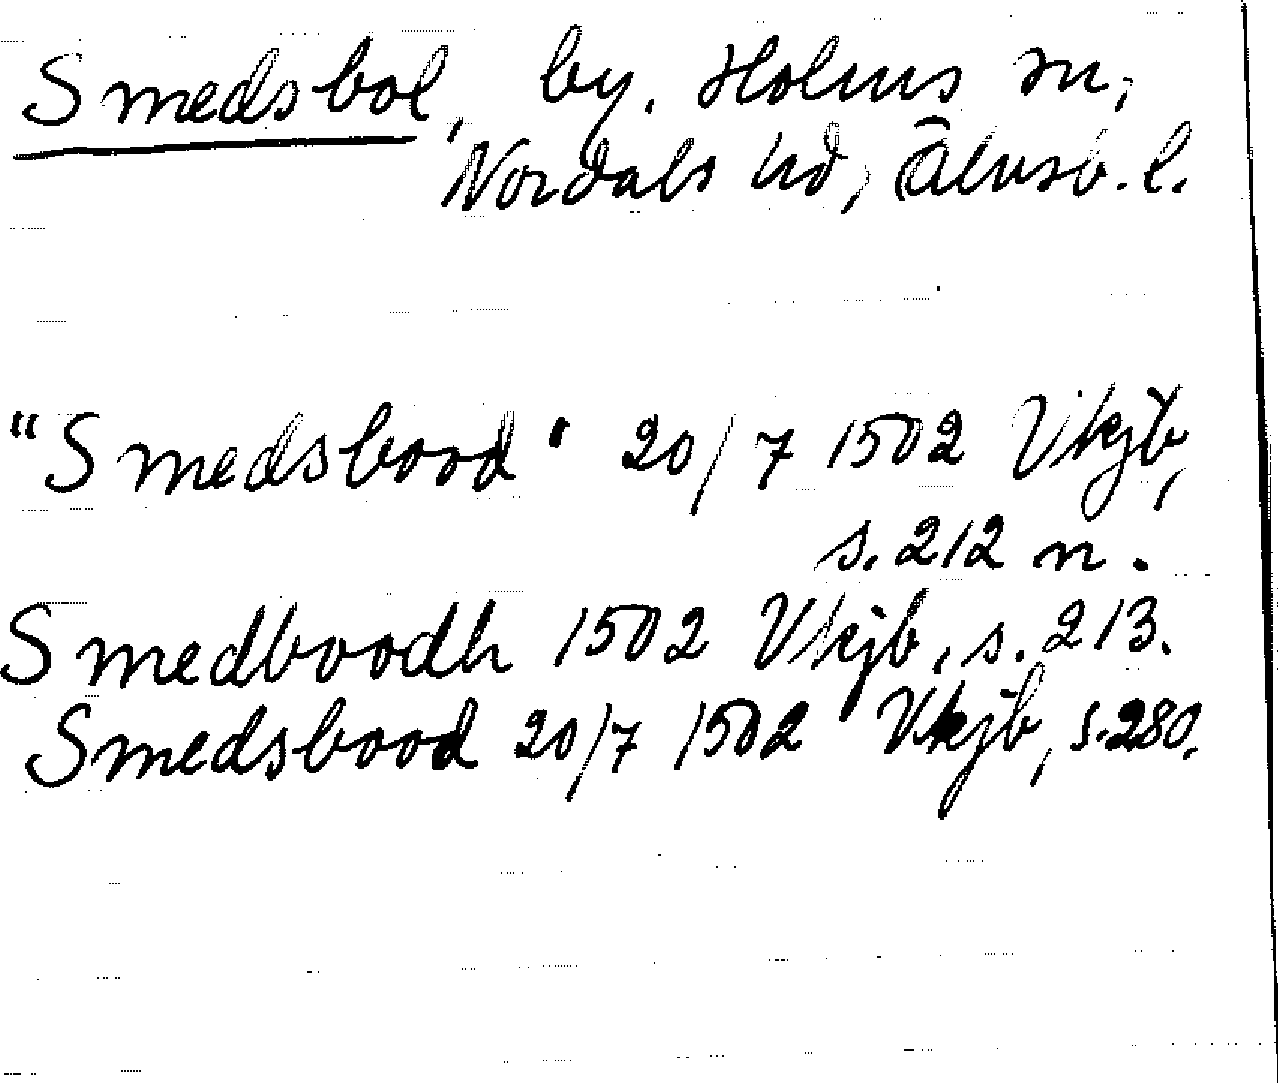 Smedsbol, by. Holms sn,
Nordals hd, Älvsb. l.
"Smedsbood" 20/7 1502 Vkjb,
s. 212 n.
Smedboodh 1502 Vkjb, s. 213.
Smedsbood 20/7 1502 Vkjb, s. 280.